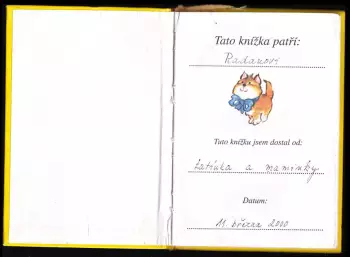 Tato knížka patří:
Radanovi
Tuto knížku jsem dostal od:
tatínka a maminky
Datum:
11. března 2000